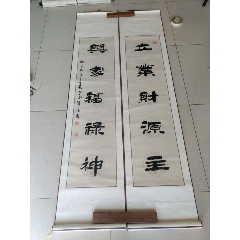 立業財源主
興家福祿神